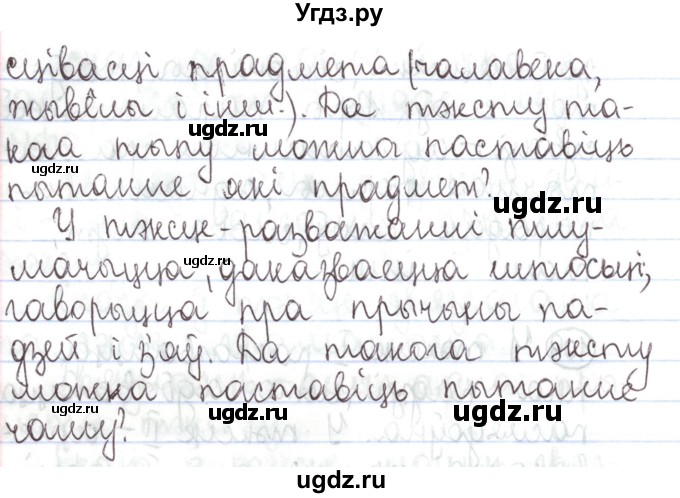 Угдз.ру
сцівасці прадмета (чалавека,
жывёлы і інш.). Да тэксту та-
коа тыпу можна паставіць
пытанне які прадмет?
У тэксце-разважанні тлу-
мачыцца, даказваецца штосьці,
гаворыцца пра прычыны па-
дзей і з'яў. Да такога тэксту
можна паставіць пытанне
чаму?
ugdz.ru
ugdz.ru
ugdz.ru
ugdz.ru
ugdz.ru
ugdz.ru
ugdz.ru
ugdz.ru